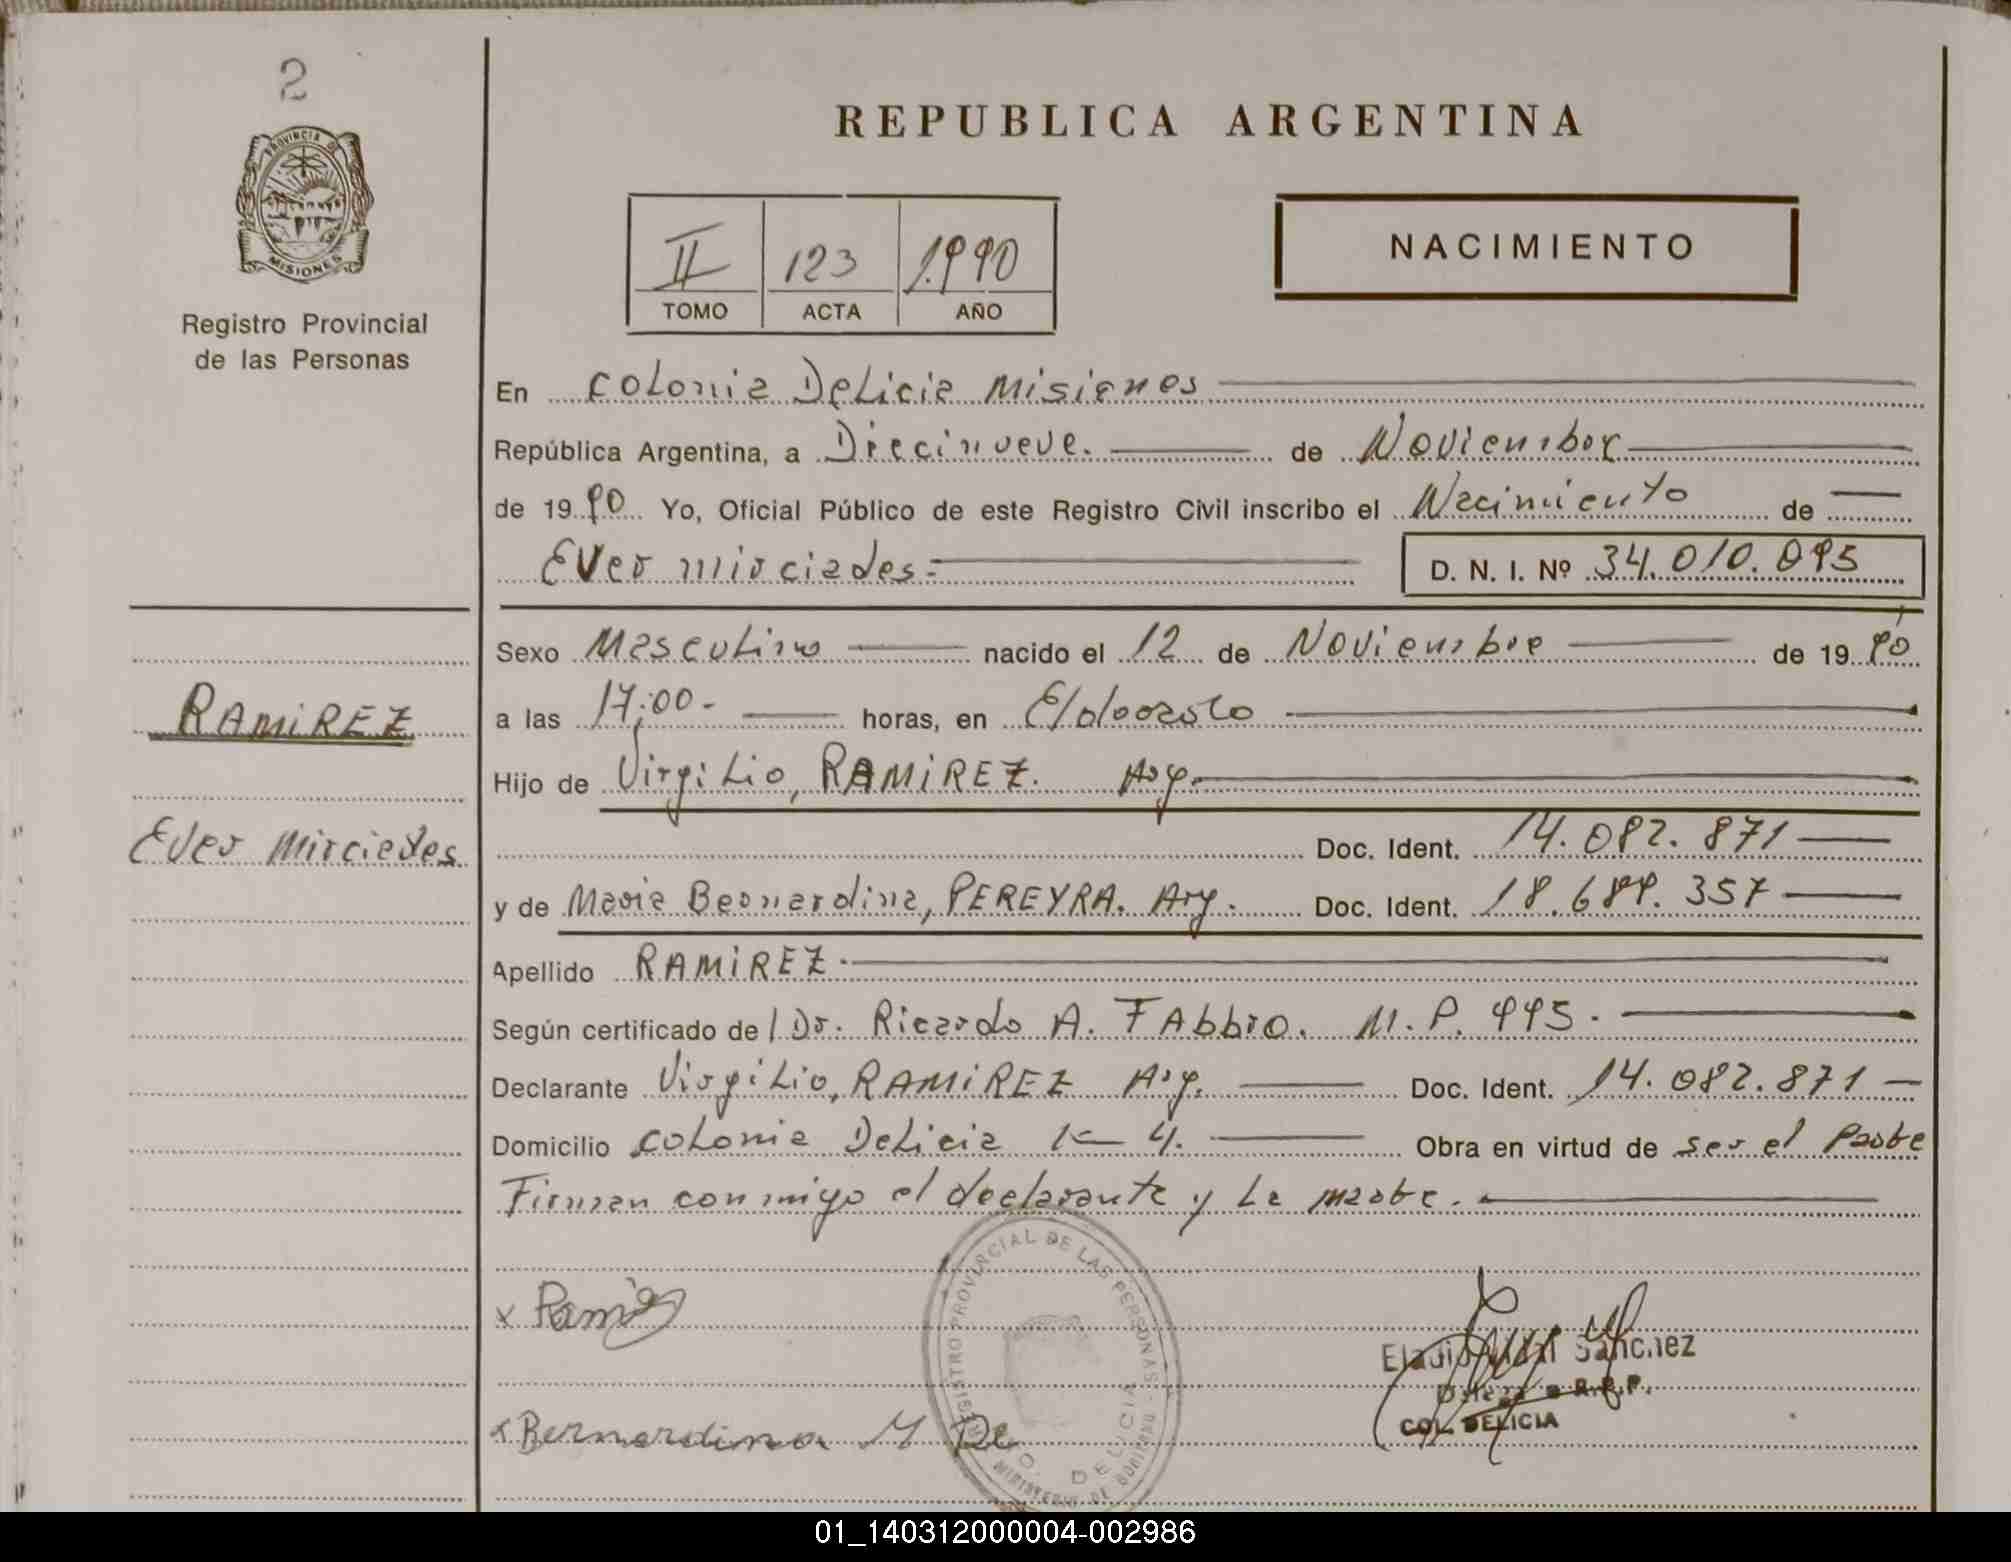 2
REPUBLICA ARGENTINA
PROVINCIA DE
MISIONES
Registro Provincial
de las Personas
II 123 1.990
TOMO ACTA AÑO
NACIMIENTO
En Colonia Delicia Misiones
República Argentina, a Diecinueve. de Noviembre
de 19 90 Yo, Oficial Público de este Registro Civil inscribo el Nacimiento de
Ever Mirciades=
D. N. I. Nº 34.010.095
Sexo Masculino nacido el 12 de Noviembre de 19 90
RAMIREZ
a las 17:00- horas, en Eldorado
Hijo de Virgilio, RAMIREZ. Arg.
Ever Mirciades
Doc. Ident. 14.082.871
y de Maria Bernardina, PEREYRA. Arg. Doc. Ident. 18.689.357
Apellido RAMIREZ
Según certificado de / Dr. Ricardo A. FAbbro. M.P. 995.
Declarante Virgilio, RAMIREZ Arg. Doc. Ident. 14.082.871
Domicilio Colonia Delicia K 4. Obra en virtud de ser el Padre
Firman conmigo el declarante y La madre.
REGISTRO PROVINCIAL DE LAS PERSONAS
MINISTERIO DE GOBIERNO
DELICIA
x Ramirez
Sanchez
R.P.P.
COL. DELICIA
x Bernardina M De
01_140312000004-002986